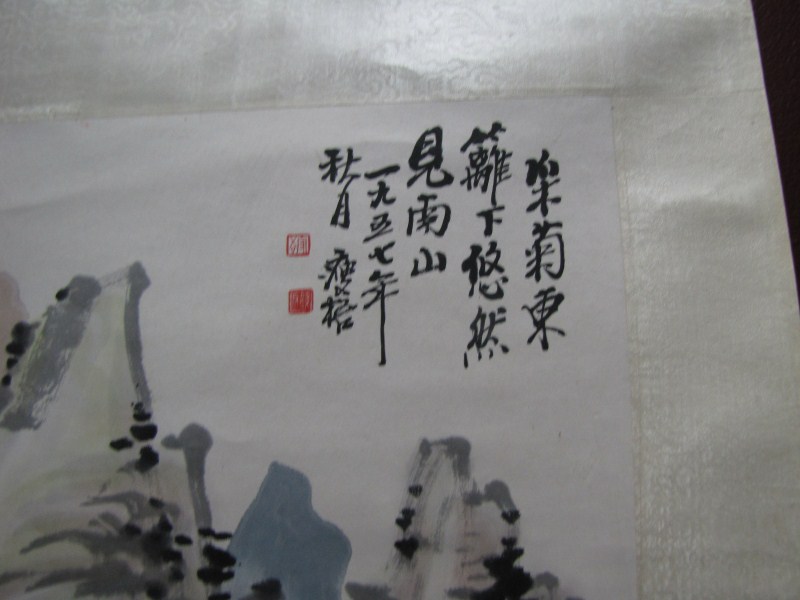 采菊東
籬下悠然
見南山
一九五七年
秋月